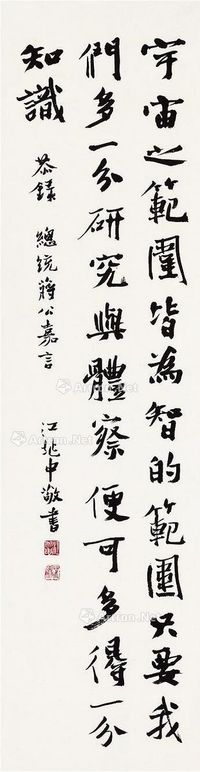 宇宙之範圍皆為智的範圍只要我
們多一分研究與體察便可多得一分
知識
恭錄 總統蔣公嘉言
江兆申敬書